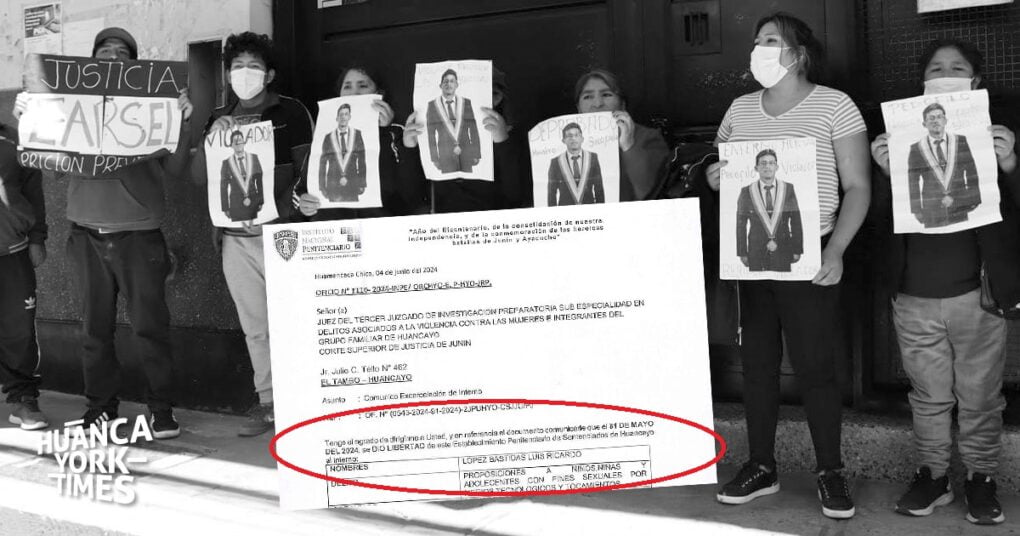 JUSTICIA
CARSEL
PRICION PREV
VIOLADOR
DEPRABADO
HUANCA
YORK-
TIMES
INPE
INSTITUTO
NACIONAL
PENITENCIARIO
"Año del Bicentenario, de la consolidación de nuestra
Independencia, y de la conmemoración de las heroicas
batallas de Junín y Ayacucho"
Huamancaca Chico, 04 de junio del 2024
OFICIO N° 2024-INPE/ ORCHYO-E.P-HYO-JRP.
Señor (a)
JUEZ DEL TERCER JUZGADO DE INVESTIGACIÓN PREPARATORIA SUB ESPECIALIDAD EN
DELITOS ASOCIADOS A LA VIOLENCIA CONTRA LAS MUJERES E INTEGRANTES DEL
GRUPO FAMILIAR DE HUANCAYO
CORTE SUPERIOR DE JUSTICIA DE JUNIN
Jr. Julio C. Tello N° 462
EL TAMBO – HUANCAYO
Asunto : Comunico Excarcelación de Interno
: OF. N° (0543-2024-91-2024)-2JPUHYO-CSJJU/PJ
Tengo el agrado de dirigirme a Usted, y en referencia al documento comunicarle que el 31 DE MAYO
DEL 2024, se DIO LIBERTAD de este Establecimiento Penitenciario de Sentenciados de Huancayo
al interno:
NOMBRES LOPEZ BASTIDAS LUIS RICARDO
DELITO PROPOSICIONES A NIÑOS,NIÑAS Y
ADOLECENTES CON FINES SEXUALES POR
MEDIOS TECNOLOGICOS Y TOCAMIENTOS